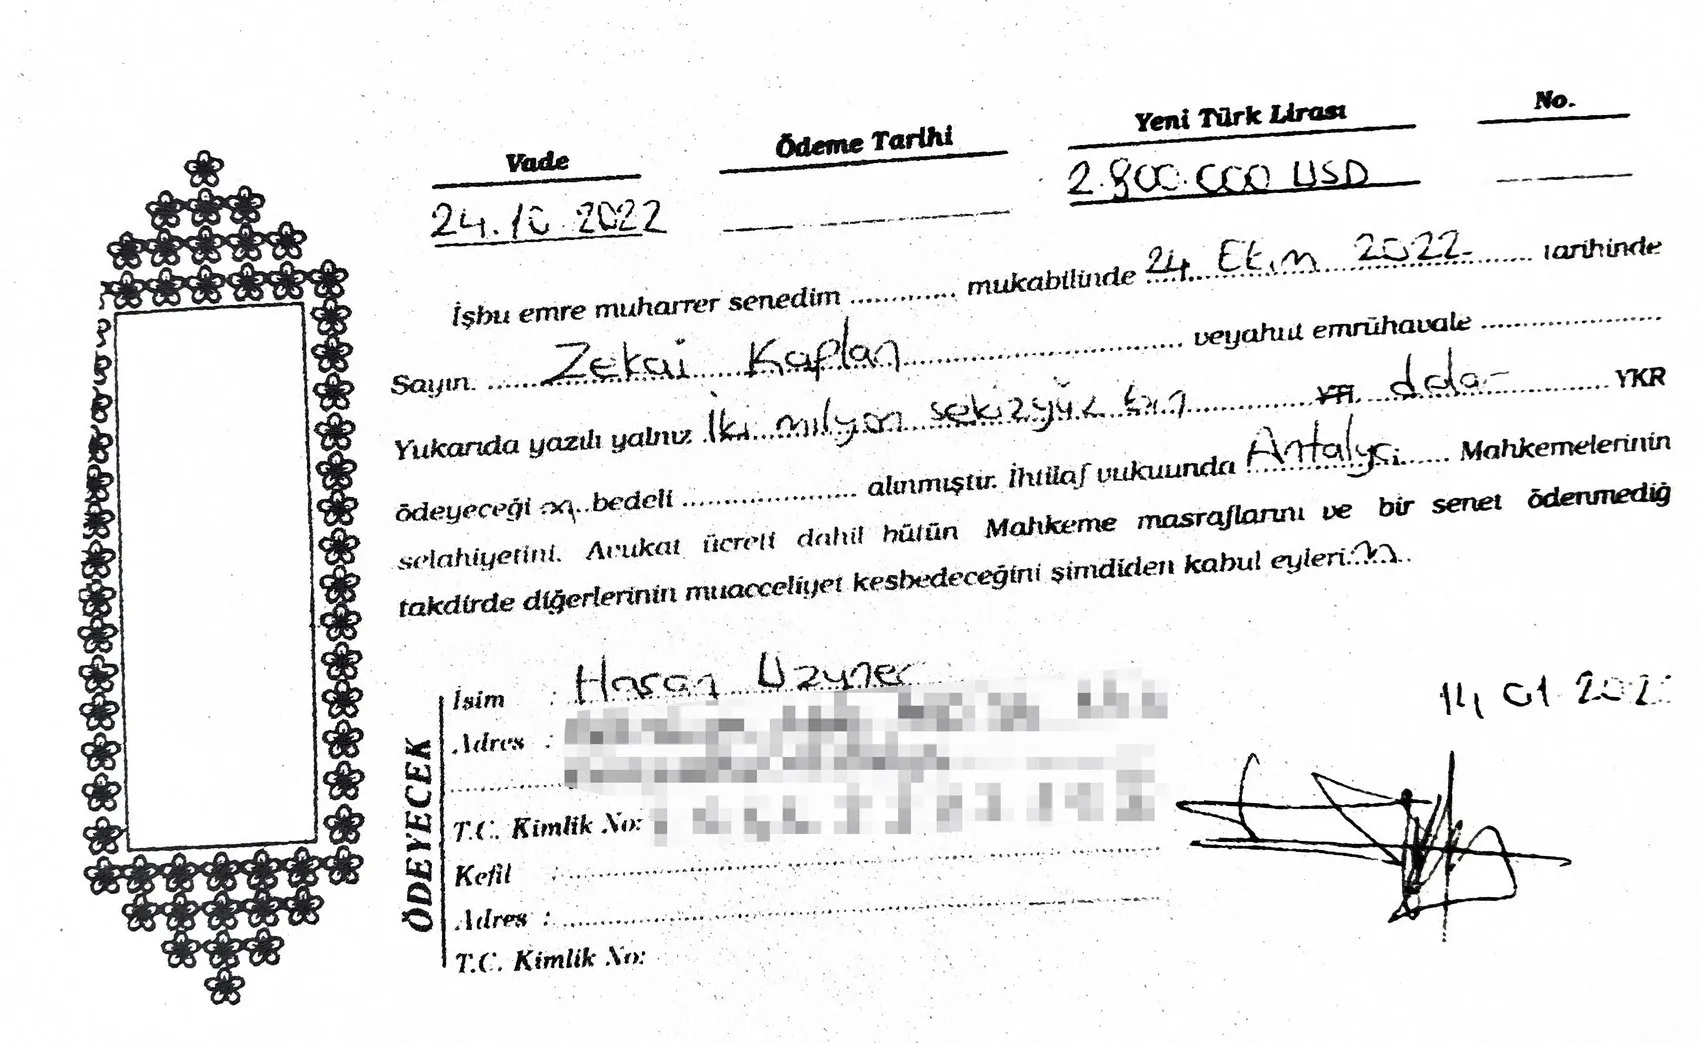 Vade Ödeme Tarihi Yeni Türk Lirası No.
24.10.2022 2.800.000 USD
İşbu emre muharrer senedim ............ mukabilinde 24 Ekim 2022 ........ tarihinde
Sayın. Zekai Kaplan ........ veyahut emrühavale ........
Yukarıda yazılı yalnız İki milyon sekizyüz bin ........ dolar ........ YKR
ödeyeceği bedeli ........ alınmıştır. İhtilaf vukuunda Antalya ........ Mahkemelerinin
selahiyetini. Avukat ücreti dahil bütün Mahkeme masraflarını ve bir senet ödenmediğ
takdirde diğerlerinin muacceliyet kesbedeceğini şimdiden kabul eyleri..m..
ÖDEYECEK
İsim : Hasan Uzuner
14 01
Adres :
T.C. Kimlik No:
Kefil :
Adres :
T.C. Kimlik No: